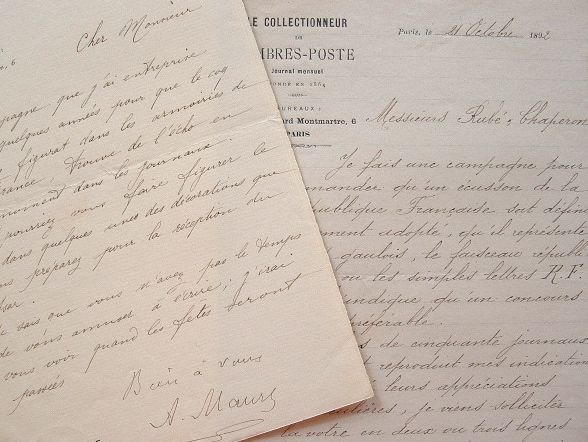 6
Cher Monsieur
pagne que j'ai entreprise
quelques années pour que le coq
figurat dans les armoiries de
rance, trouve de l'écho en
moment dans les journaux.
pourriez vous faire figurer le
dans quelques unes des décorations que
us préparez pour la réception du
sar.
e sais que vous n'avez pas le temps
de vous amuser à écrire; j'irai
vous voir quand les fêtes seront
passées
Bien à vous
A. Maury
LE COLLECTIONNEUR
DE
MBRES-POSTE
Journal mensuel
ONDÉ EN 1864
BUREAUX:
ard Montmartre, 6
PARIS
Paris, le 21 Octobre 1892
Messieurs Rubé, Chaperon
Je fais une campagne pour
mander qu'un écusson de la
publique Française soit défini
ment adopté, qu'il représente
gaulois, le faisceau républi
ou les simples lettres R.F.
indique, qu'un concours
préférable.
s de cinquante journaux
t reproduit mes indication
leurs appréciations
ulières, je viens solliciter
la votre en deux ou trois lignes